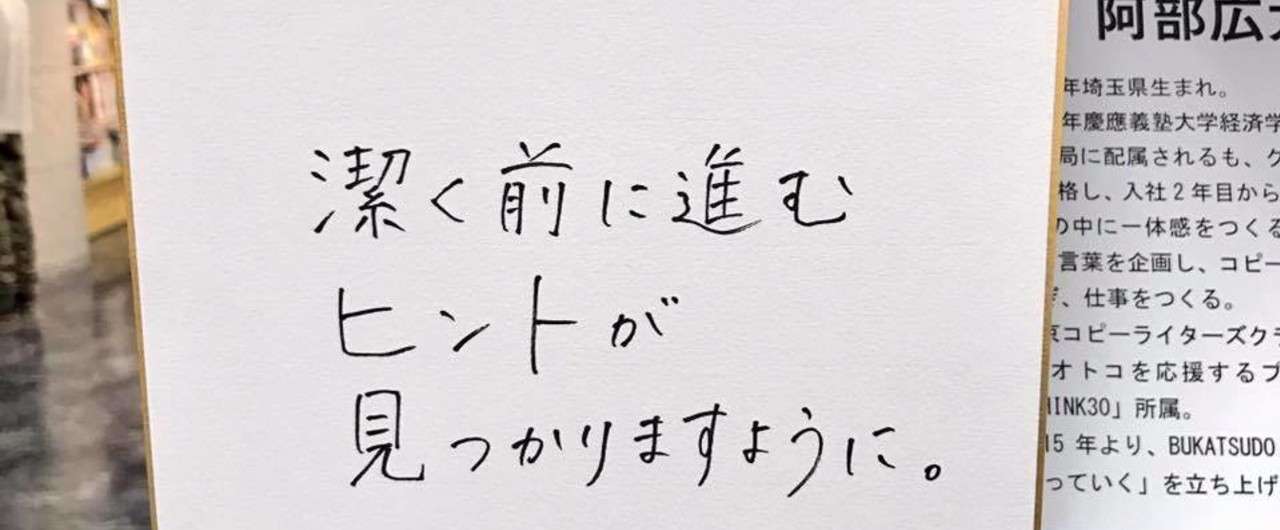 潔く前に進む
ヒントが
見つかりますように。
阿部広
年埼玉県生まれ。
年慶應義塾大学経済学
局に配属されるも、ク
格し、入社2年目から
の中に一体感をつくる
言葉を企画し、コピー
、仕事をつくる。
京コピーライターズクラ
オトコを応援するプ
HINK30」所属。
15年より、BUKATSUDO
っていく」を立ち上げ